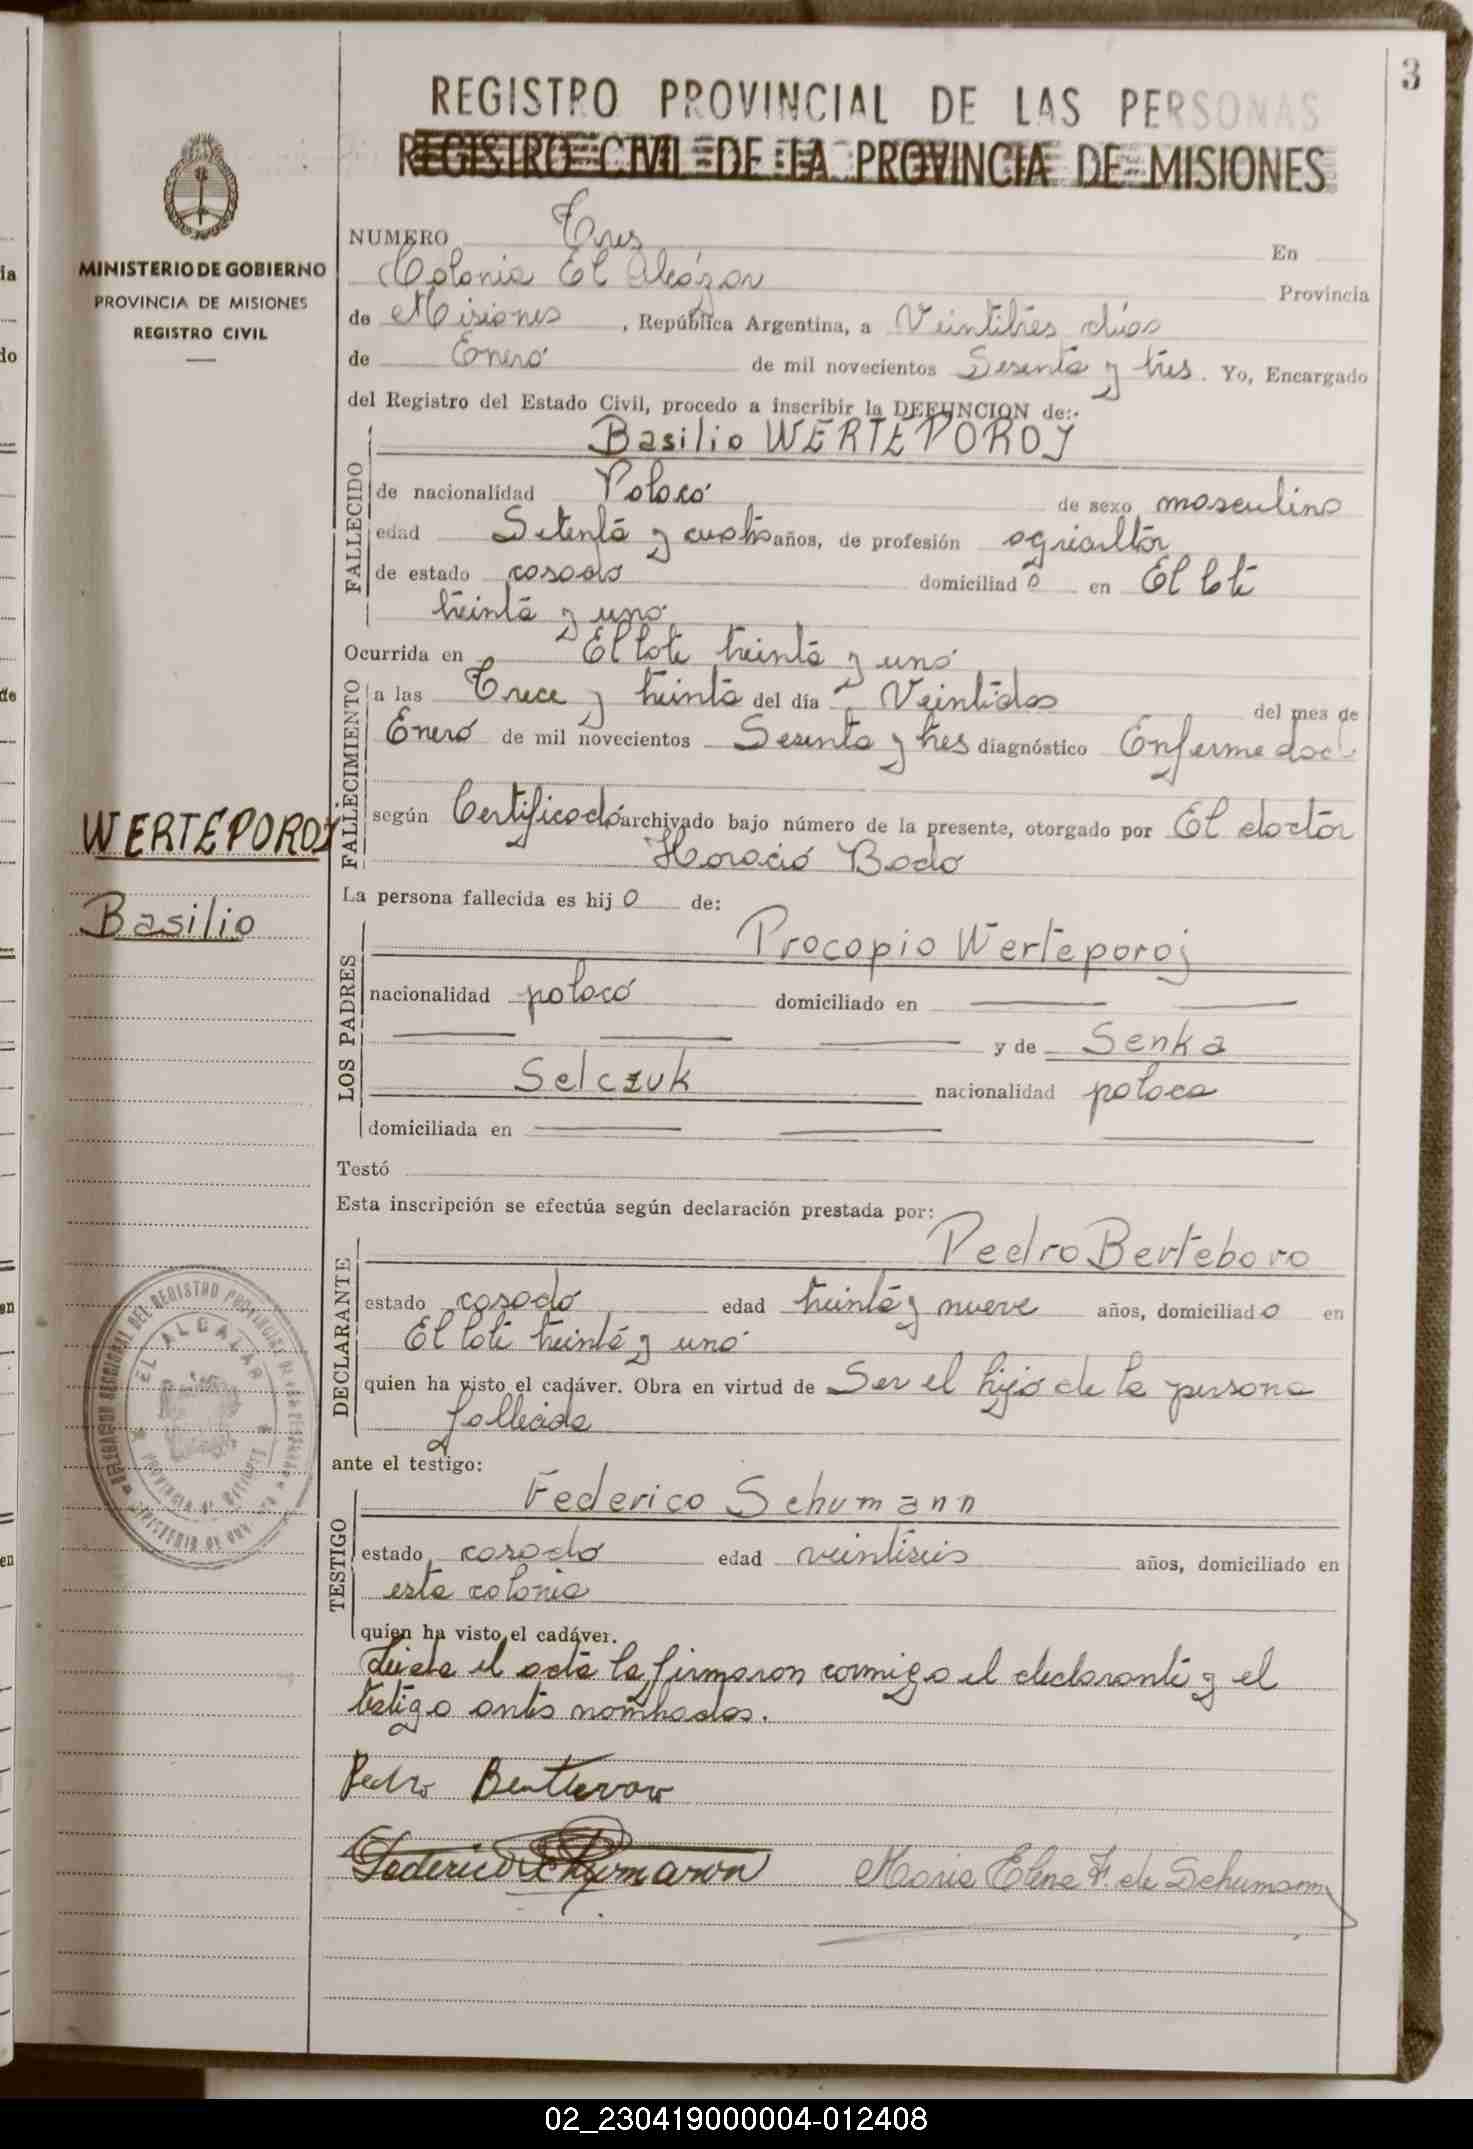 3
REGISTRO PROVINCIAL DE LAS PERSONAS
REGISTRO CIVIL DE LA PROVINCIA DE MISIONES
MINISTERIO DE GOBIERNO
PROVINCIA DE MISIONES
REGISTRO CIVIL
NUMERO Tres En
Colonia El Alcázar Provincia
de Misiones, República Argentina, a Veintitrés días
de Enero de mil novecientos Sesenta y tres. Yo, Encargado
del Registro del Estado Civil, procedo a inscribir la DEFUNCION de:
Basilio WERTEPOROJ
FALLECIDO
de nacionalidad Polaco de sexo masculino
edad Setenta y cuatro años, de profesión agricultor
de estado casado domiciliado en El lote
treinta y uno
Ocurrida en El lote treinta y uno
FALLECIMIENTO
a las Trece y treinta del día Veintidos del mes de
Enero de mil novecientos Sesenta y tres diagnóstico Enfermedad
según Certificado archivado bajo número de la presente, otorgado por El doctor
Horacio Bado
WERTEPOROJ
Basilio
La persona fallecida es hijo de:
LOS PADRES
Procopio Werteporoj
nacionalidad polaco domiciliado en
y de Senka
Selczuk nacionalidad polaca
domiciliada en
Testó
Esta inscripción se efectúa según declaración prestada por:
DECLARANTE
Pedro Berteboro
estado casado edad treinta y nueve años, domiciliado en
El lote treinta y uno
quien ha visto el cadáver. Obra en virtud de Ser el hijo de la persona
fallecida
ante el testigo:
TESTIGO
Federico Schumann
estado casado edad veintiseis años, domiciliado en
esta colonia
quien ha visto el cadáver.
Leida el acta la firmaron conmigo el declarante y el
testigo antes nombrados.
EL ALCAZAR
PROVINCIA DE MISIONES
Pedro
Federico Schumann
Maria Elena F. de Schumann
02_230419000004-012408